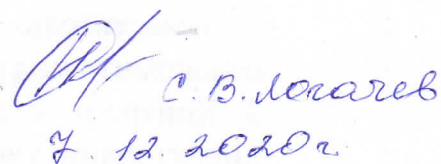 С. В. Логачев
7. 12. 2020г.